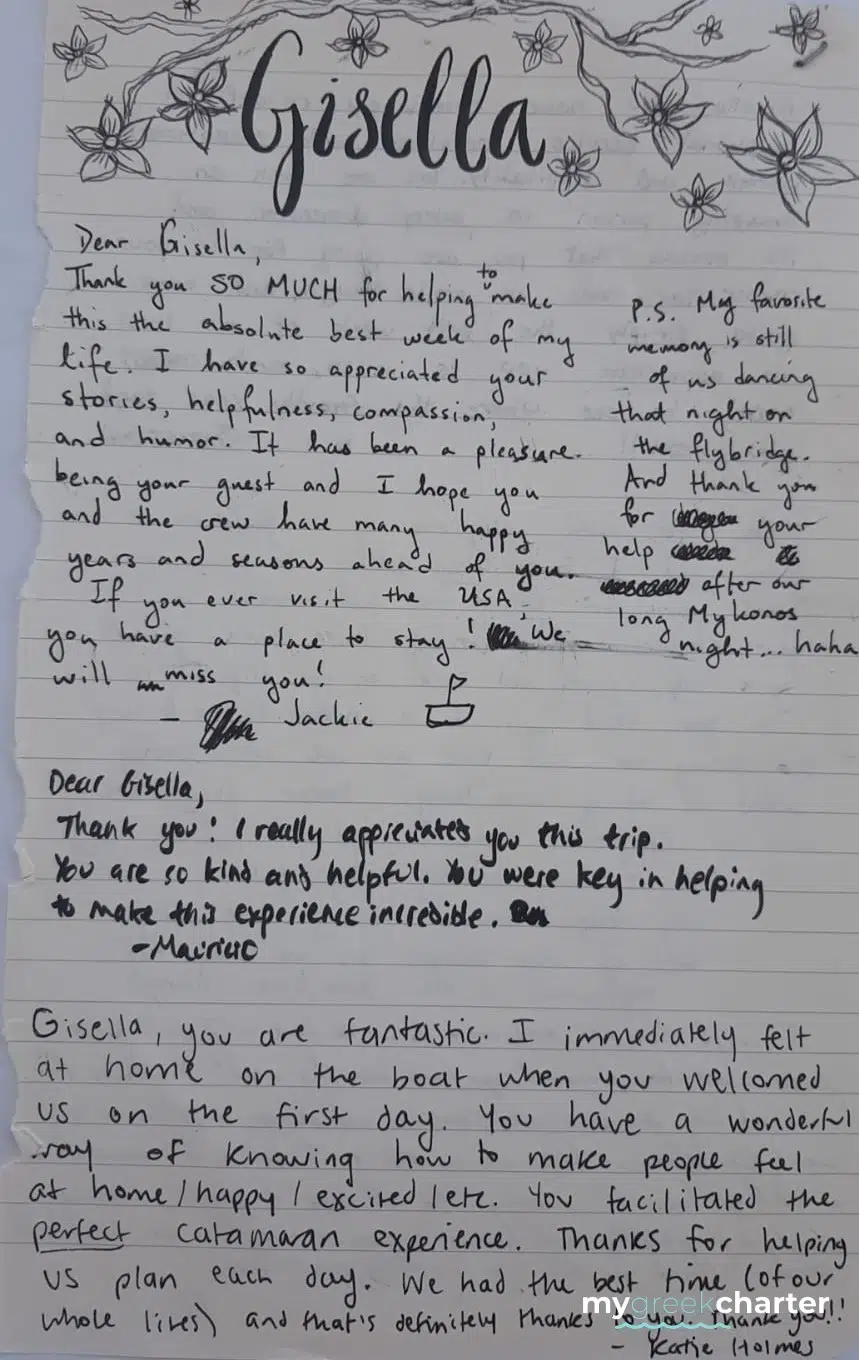 Gisella
Dear Gisella,
Thank you SO MUCH for helping to make
this the absolute best week of my
life. I have so appreciated your
stories, helpfulness, compassion,
and humor. It has been a pleasure
being your guest and I hope you
and the crew have many happy
years and seasons ahead of you.
If you ever visit the USA,
you have a place to stay! We
will miss you!
- Jackie
P.S. My favorite
memory is still
of us dancing
that night on
the flybridge.
And thank you
for your
help
after our
long Mykonos
night... haha
Dear Gisella,
Thank you! I really appreciated you this trip.
You are so kind and helpful. You were key in helping
to make this experience incredible.
- Mauricio
Gisella, you are fantastic. I immediately felt
at home on the boat when you welcomed
us on the first day. You have a wonderful
way of knowing how to make people feel
at home/happy/excited/etc. You facilitated the
perfect catamaran experience. Thanks for helping
us plan each day. We had the best time (of our
whole lives) and that's definitely thanks to you. Thank you!!
- Katie Holmes
mygreekcharter